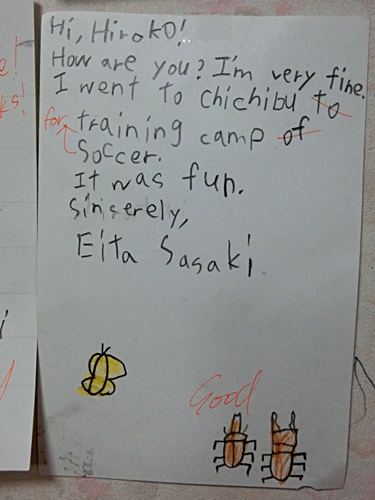 Hi, Hiroko!
How are you? I'm very fine.
I went to chichibu to
for training camp of
Soccer.
It was fun.
Sincerely,
Eita Sasaki
Good
e!
ks!
i